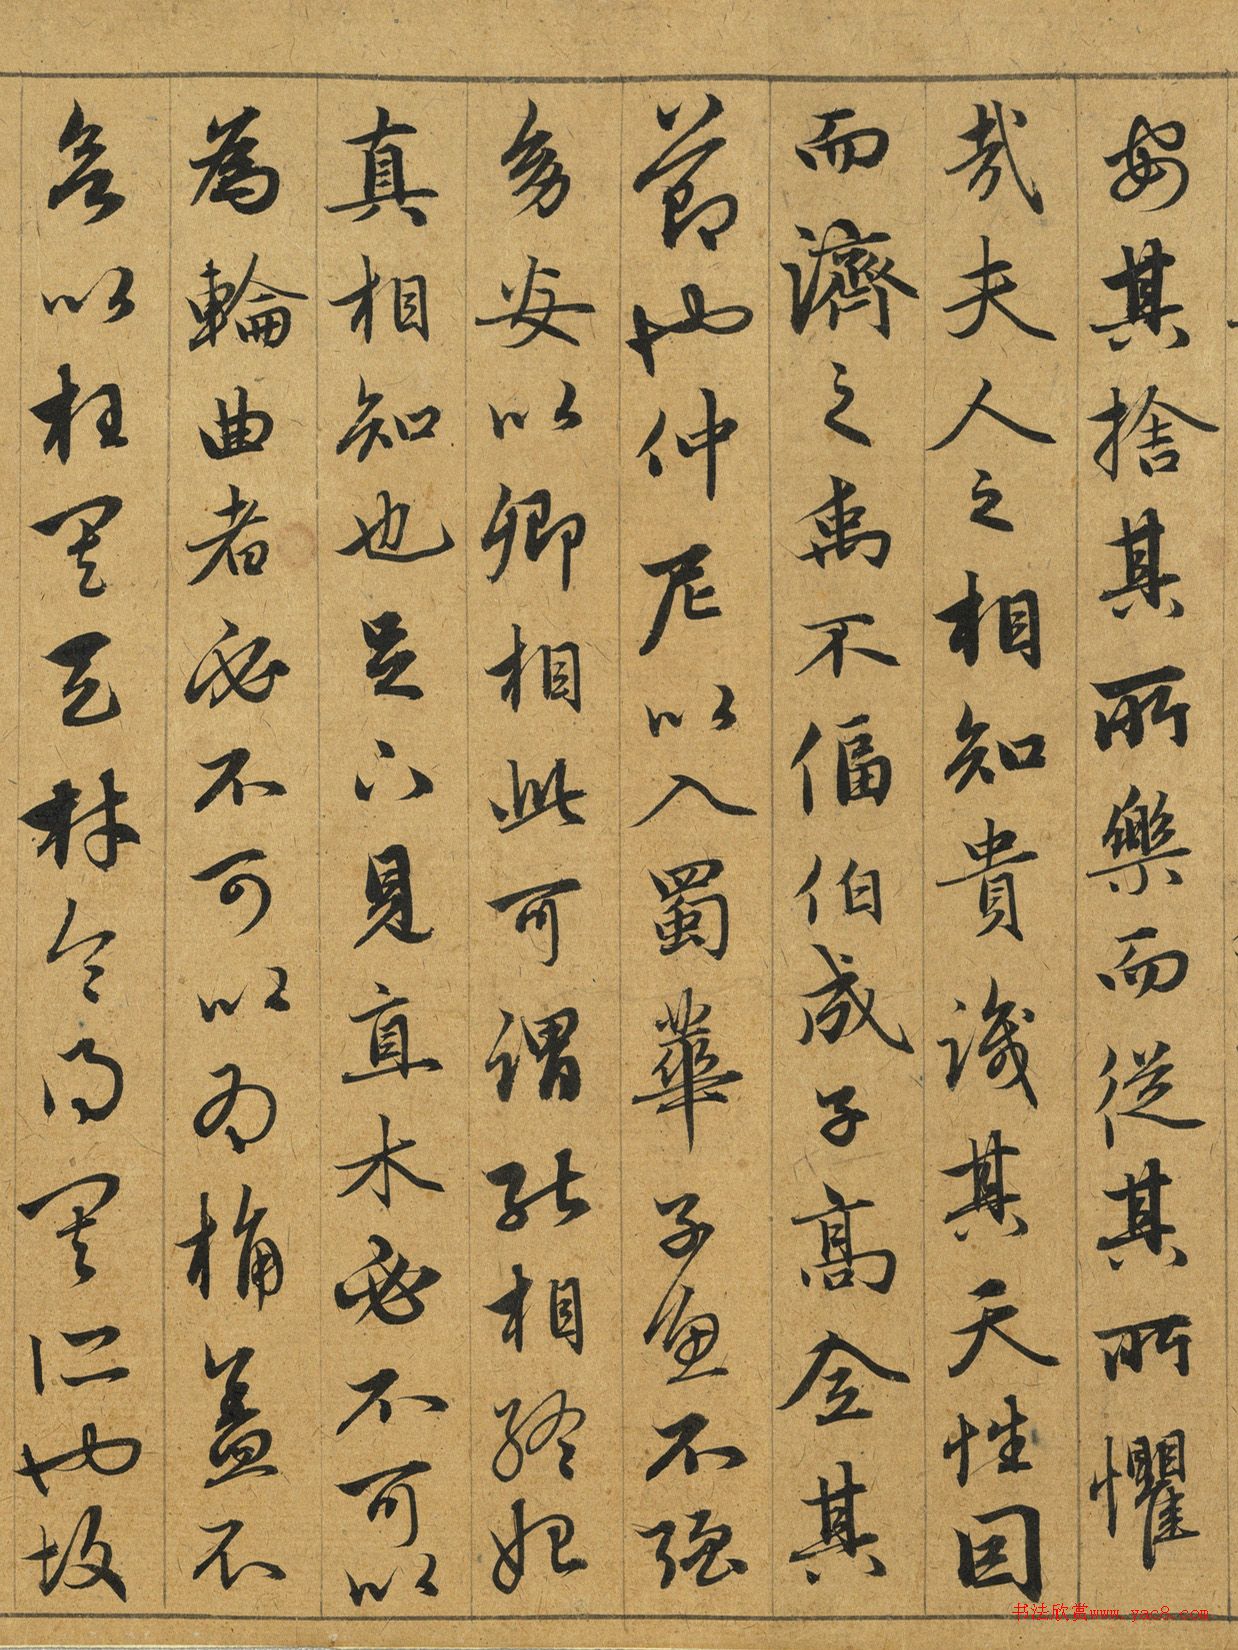 安其捨其所樂而從其所懼
哉夫人之相知貴識其天性因
而濟之禹不偪伯成子高全其
節也仲尼以入蜀華子魚不強
幼安以卿相此可謂能相終始
真相知也足下見直木必不可以
為輪曲者必不可以為桷蓋不
欲以枉其天材令得其所也故
书法欣赏www.yac8.com